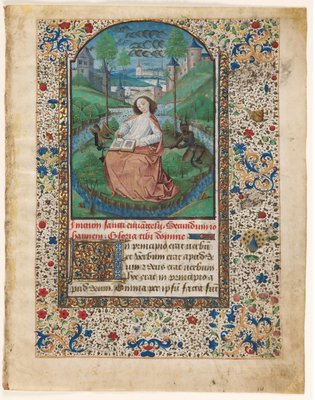 Inicium sancti euuangelij. Secundum io
hannem. Gloria tibi domine.
In principio erat verbū
et verbum erat apud de
um et deus erat verbum
hoc erat in principio a
pud deum. Omnia per ipsū facta sūt